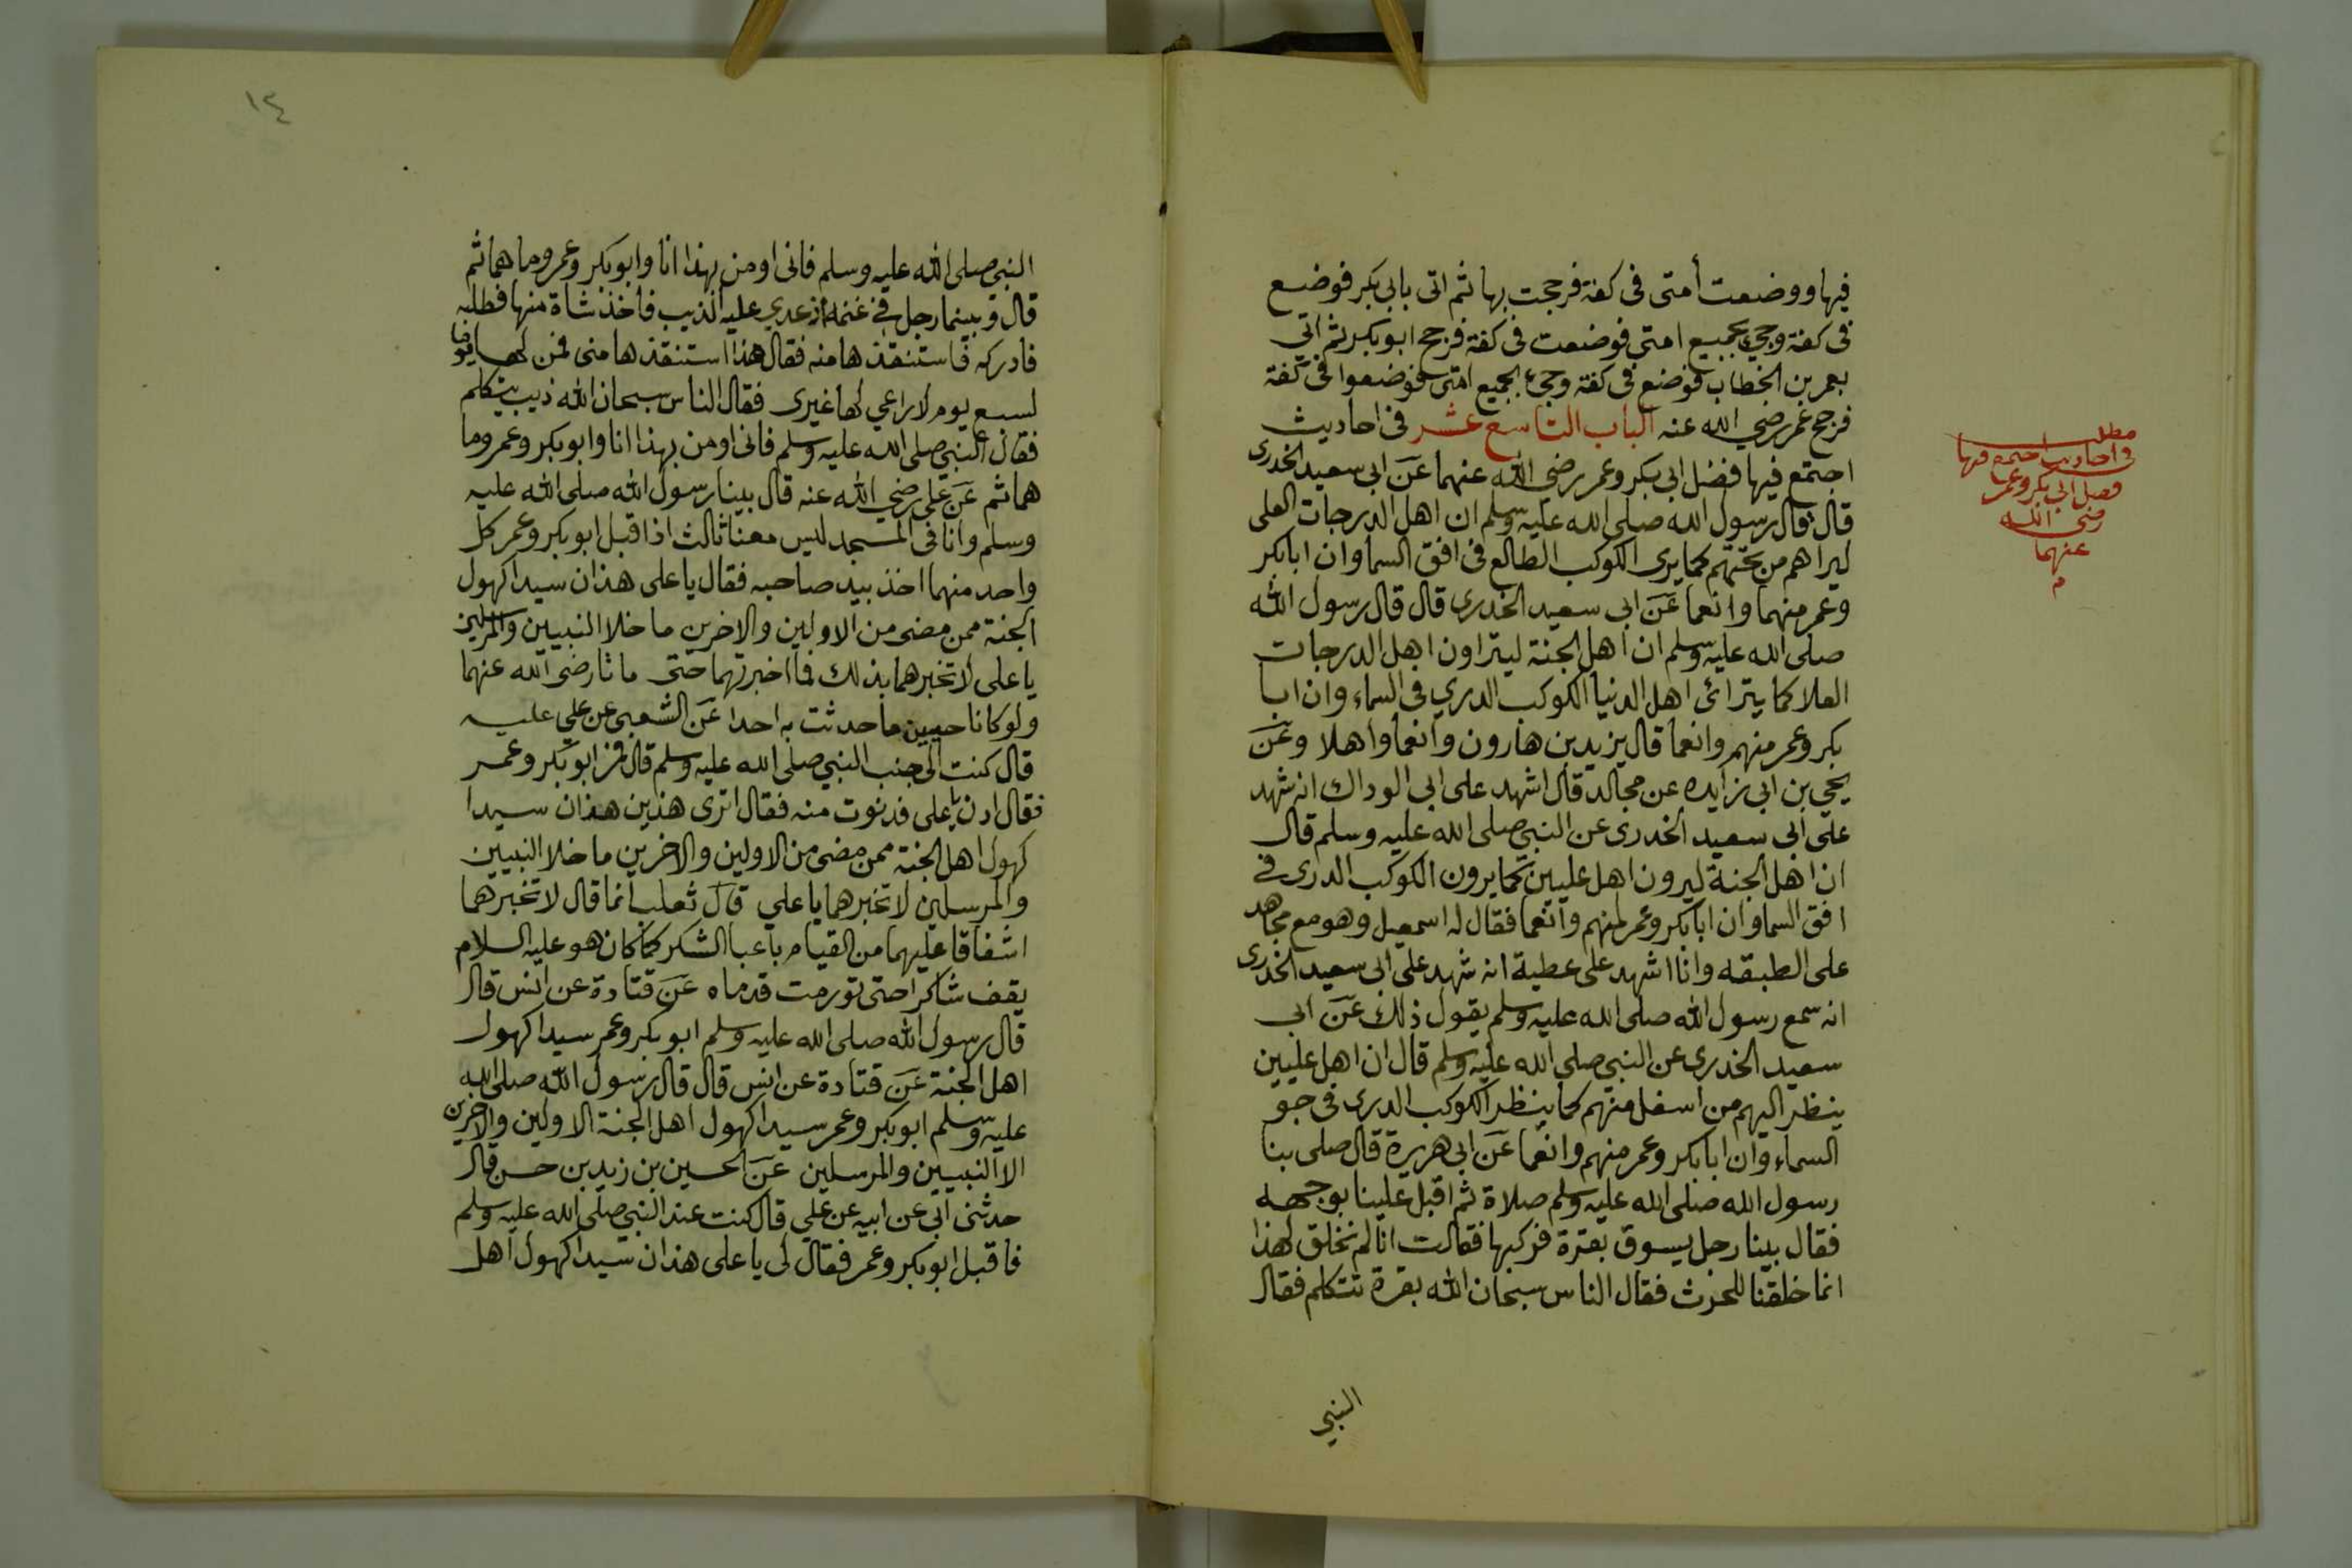 فيها ووضعت أمتى فى كفة فرجحت بها ثم اتى بابى بكر فوضع
فى كفة وجيء بجميع امتى فوضعت فى كفة فرجح ابو بكر ثم اتى
بعمر بن الخطاب فوضع فى كفة وجيء بجميع امتى فوضعوا فى كفة
فرجح عمر رضي الله عنه الباب التاسع عشر فى احاديث
اجتمع فيها فضل ابى بكر وعمر رضي الله عنهما عن ابى سعيد الخدرى
قال قال رسول الله صلى الله عليه وسلم ان اهل الدرجات العلى
ليراهم من تحتهم كما يرى الكوكب الطالع فى افق السما وان ابا بكر
وعمر منهما وانعما عن ابى سعيد الخدرى قال قال رسول الله
صلى الله عليه وسلم ان اهل الجنة ليتراون اهل الدرجات
العلا كما يترائ اهل الدنيا الكوكب الدري فى السماء وان ابا
بكر وعمر منهم وانعما قال يزيد بن هارون وانعما واهلا وعن
يحيى بن ابى زايده عن مجالد قال اشهد على ابى الوداك انه شهد
على ابى سعيد الخدرى عن النبي صلى الله عليه وسلم قال
ان اهل الجنة ليرون اهل عليين كما يرون الكوكب الدرى فى
افق السما وان ابا بكر وعمر لمنهم وانعما فقال له اسمعيل وهو مع مجاهد
على الطبقه وانا اشهد على عطية انه شهد على ابى سعيد الخدرى
انه سمع رسول الله صلى الله عليه وسلم يقول ذلك عن ابى
سعيد الخدرى عن النبي صلى الله عليه وسلم قال ان اهل عليين
ينظر اليهم من اسفل منهم كما ينظر الكوكب الدرى فى جو
السماء وان ابا بكر وعمر منهم وانعما عن ابى هريرة قال صلى بنا
رسول الله صلى الله عليه وسلم صلاة ثم اقبل علينا بوجهه
فقال بينا رجل يسوق بقرة فركبها فقالت انا لم نخلق لهذا
انما خلقنا للحرث فقال الناس سبحان الله بقرة تتكلم فقال
النبي
مطلب
فى احاديث اجتمع فيها
فضل ابى بكر وعمر
رضى الله
عنهما
م
١٤
النبي صلى الله عليه وسلم فانى اومن بهذا انا وابو بكر وعمر وما هما ثم
قال وبينما رجل فى غنمه اذ عدي عليه الذيب فاخذ شاة منها فطلبه
فادركه فاستنقذها منه فقال هذا استنقذها منى فمن لها يوما
لسبع يوم لا راعي لها غيرى فقال الناس سبحان الله ذيب يتكلم
فقال النبي صلى الله عليه وسلم فانى اومن بهذا انا وابو بكر وعمر وما
هما ثم عن على رضي الله عنه قال بينا رسول الله صلى الله عليه
وسلم وانا فى المسجد ليس معنا ثالث اذا قبل ابو بكر وعمر كل
واحد منهما اخذ بيد صاحبه فقال يا على هذان سيدا كهول
الجنة ممن مضى من الاولين والاخرين ما خلا النبيين والمرسلين
يا على لا تخبرهما بذلك فما اخبرتهما حتى ماتا رضى الله عنهما
ولو كانا حيين ما حدثت به احدا عن الشعبى عن علي عليه
قال كنت الى جنب النبي صلى الله عليه وسلم قال فمر ابو بكر وعمر
فقال ادن يا على فدنوت منه فقال اترى هذين هذان سيدا
كهول اهل الجنة ممن مضى من الاولين والاخرين ما خلا النبيين
والمرسلين لا تخبرهما يا علي قال ثعلب انما قال لا تخبرهما
اشفاقا عليهما من القيام باعبا الشكر كما كان هو عليه السلام
يقف شاكرا حتى تورمت قدماه عن قتادة عن انس قال
قال رسول الله صلى الله عليه وسلم ابو بكر وعمر سيدا كهول
اهل الجنة عن قتادة عن انس قال قال رسول الله صلى الله
عليه وسلم ابو بكر وعمر سيدا كهول اهل الجنة الاولين والاخرين
الا النبيين والمرسلين عن الحسين بن زيد بن حسن قال
حدثنى ابى عن ابيه عن علي قال كنت عند النبي صلى الله عليه وسلم
فاقبل ابو بكر وعمر فقال لى يا على هذان سيدا كهول اهل